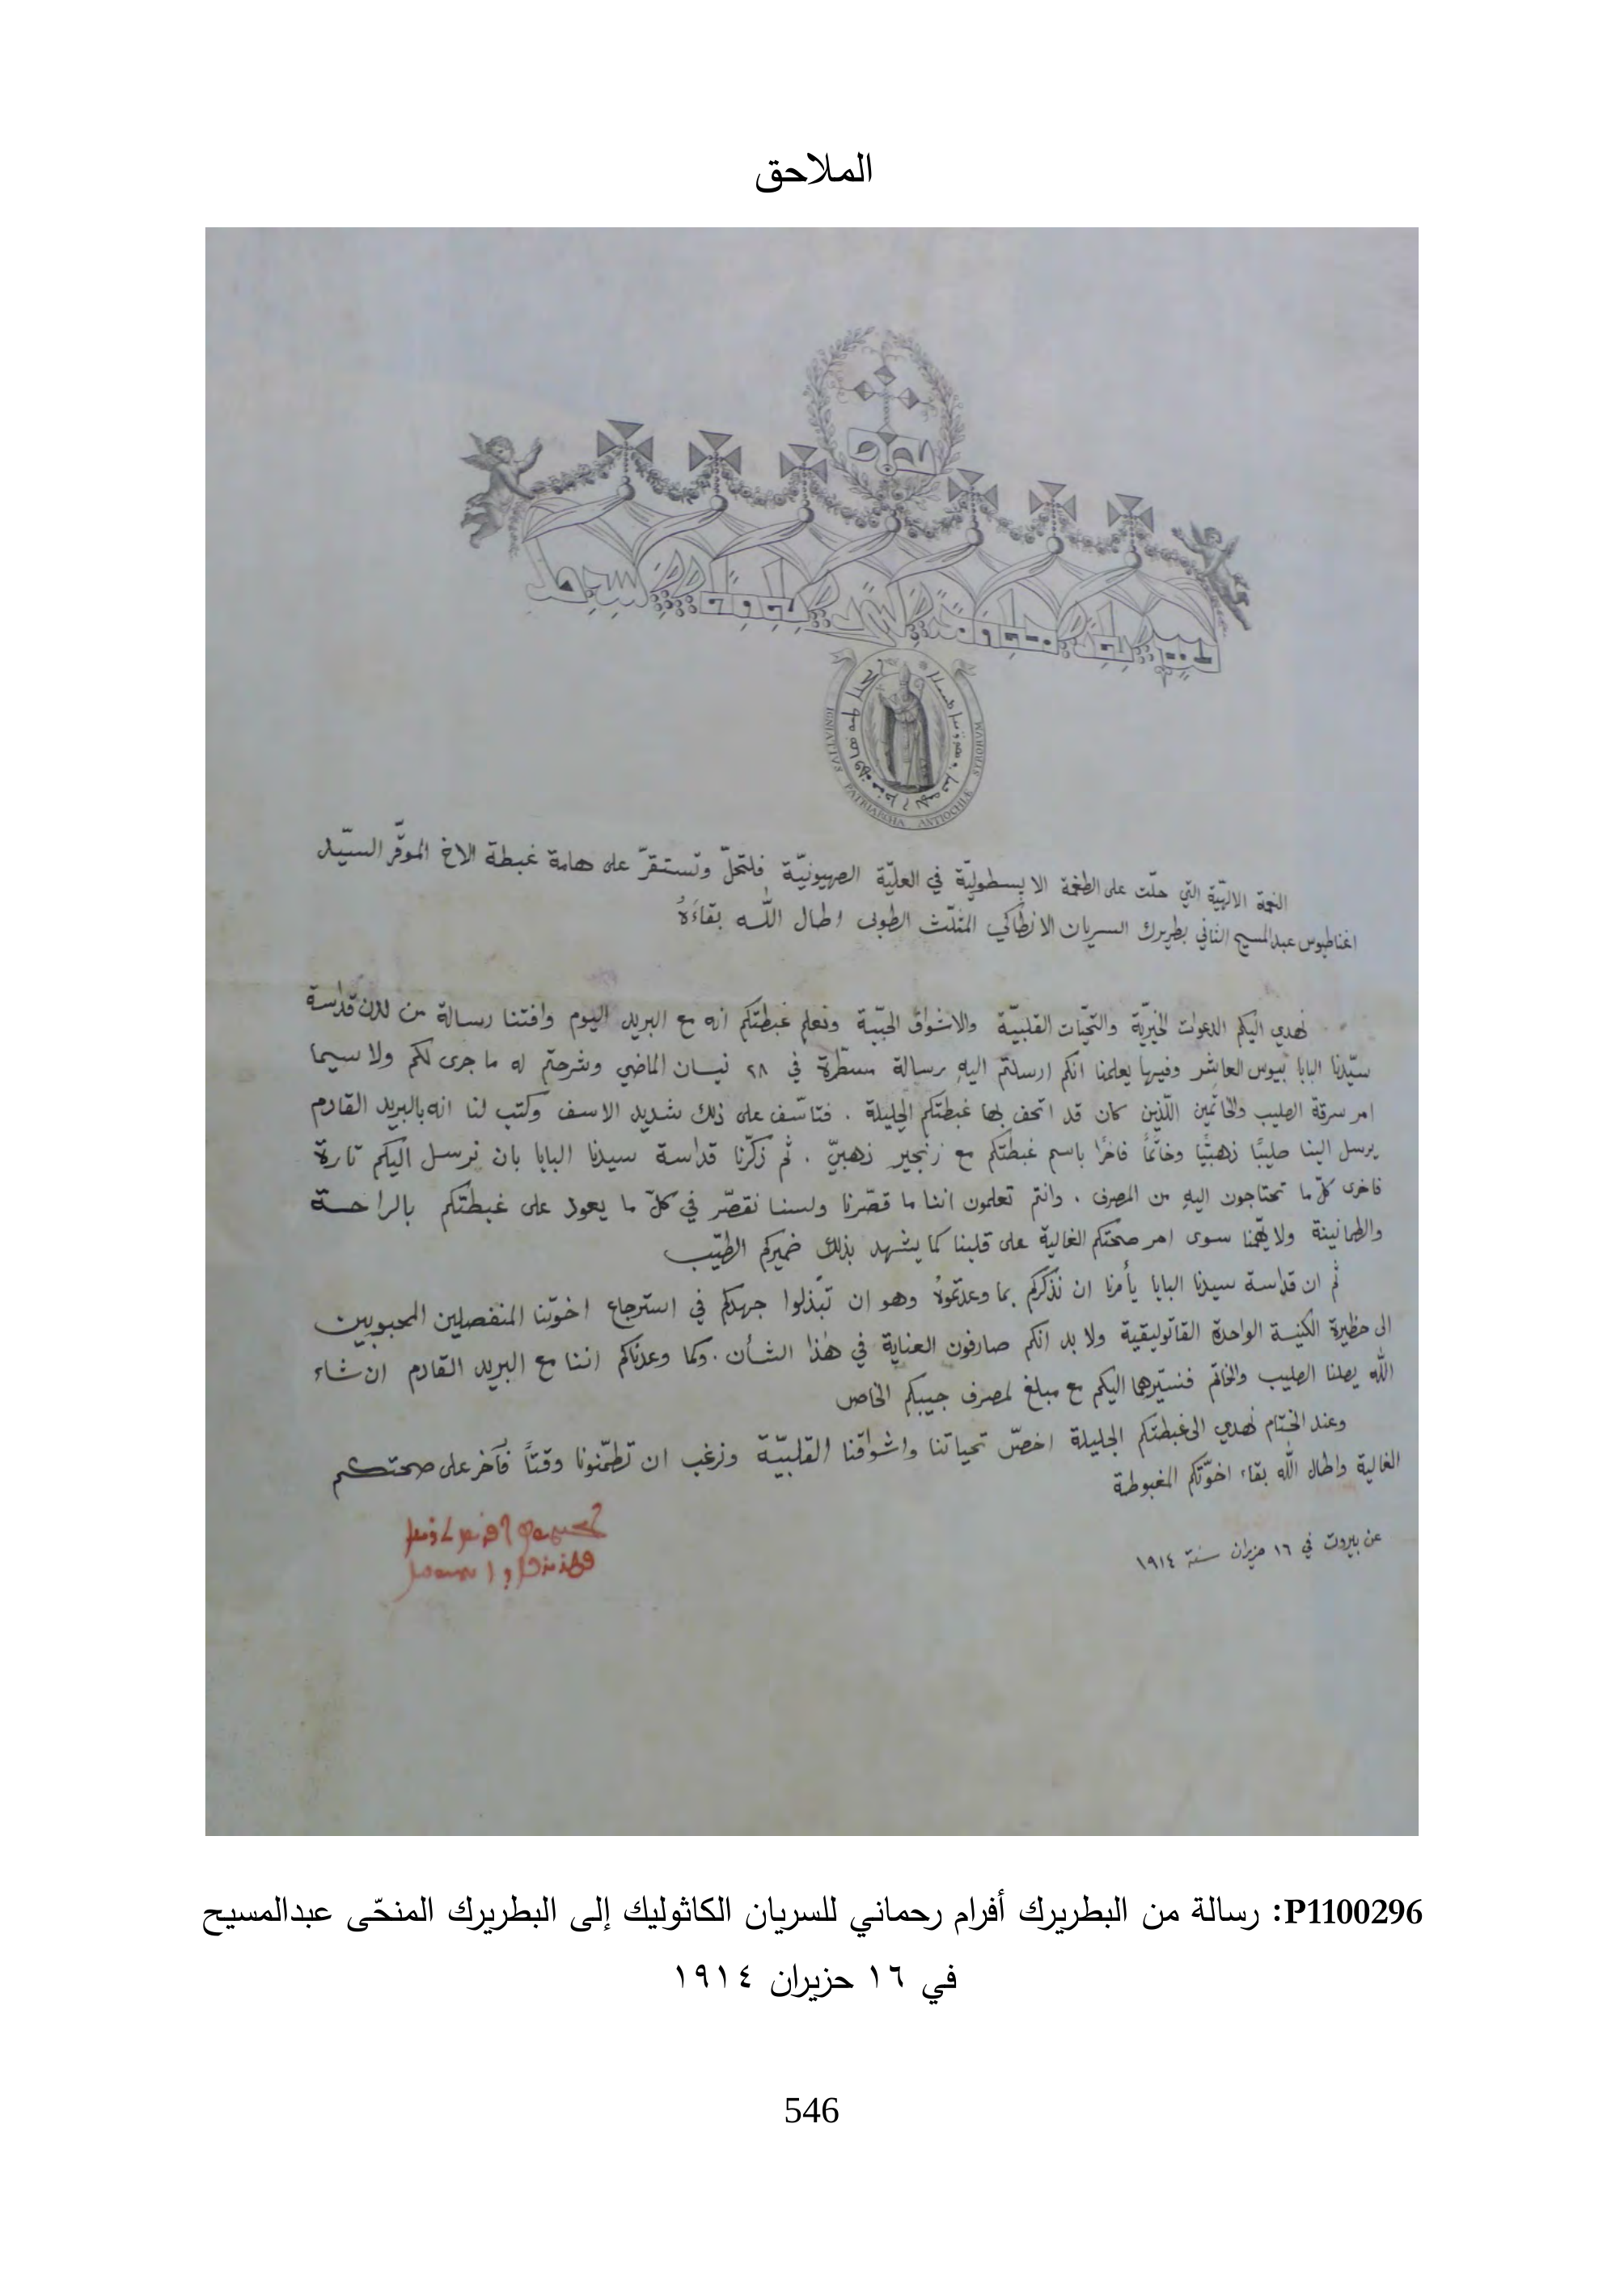 الملاحق
IGNATIVS PATRIARCHA ANTIOCHIÆ SYRORVM
النعمة الالهيّة التي حلّت على الطغمة الابسطوليّة في العليّة الصهيونيّة فلتحلّ وتستقرّ على هامة غبطة الاخ الموقّر السيّد
اغناطيوس عبدالمسيح الثاني بطريرك السريان الانطاكي المثلّث الطوبى اطال اللّه بقاءَهُ
نهدي اليكم الدعوات الخيريّة والتحيّات القلبيّة والاشواق الحبّية ونعلم غبطتكم انه مع البريد اليوم وافتنا رسالة من لدن قداسة
سيّدنا البابا بيوس العاشر وفيها يعلمنا انكم ارسلتم اليهِ برسالة مسطّرة في ٢٨ نيسان الماضي وشرحتم له ما جرى لكم ولا سيما
امر سرقة الصليب والخاتمين اللّذين كان قد اتحف بها غبطتكم الجليلة . فتاسّف على ذلك شديد الاسف وكتب لنا انه بالبريد القادم
يرسل الينا صليبًا ذهبيًّا وخاتمًا فاخرًا باسم غبطتكم مع زنجير ذهبيّ . ثم ذكّرنا قداسة سيدنا البابا بان نرسل اليكم تارة
فاخرى كلّ ما تحتاجون اليهِ من المصرف . وانتم تعلمون اننا ما قصّرنا ولسنا نقصّر في كلّ ما يعود على غبطتكم بالراحة
والطمانينة ولا يهّمنا سوى امر صحتكم الغالية على قلبنا كما يشهد بذلك ضميركم الطيّب
ثم ان قداسة سيدنا البابا يأمرنا ان نذكركم بما وعدتموهُ وهو ان تبذلوا جهدكم في استرجاع اخوتنا المنفصلين المحبوبين
الى حظيرة الكنيسة الواحدة القاتوليقية ولا بد انكم صارفون العناية في هذا الشأن . وكما وعدناكم اننا مع البريد القادم ان شاء
اللّه يصلنا الصليب والخاتم فنسيّرهما اليكم مع مبلغ لمصرف جيبكم الخاص
وعند الختام نهدي الى غبطتكم الجليلة اخصّ تحياتنا واشواقنا القلبيّة ونرغب ان تطمّنونا وقتاً فآخر على صحتكم
الغالية واطال اللّه بقاء اخوّتكم المغبوطة
عن بيروت في ١٦ حزيران سنة ١٩١٤
P1100296: رسالة من البطريرك أفرام رحماني للسريان الكاثوليك إلى البطريرك المنحّى عبدالمسيح
في ١٦ حزيران ١٩١٤
546